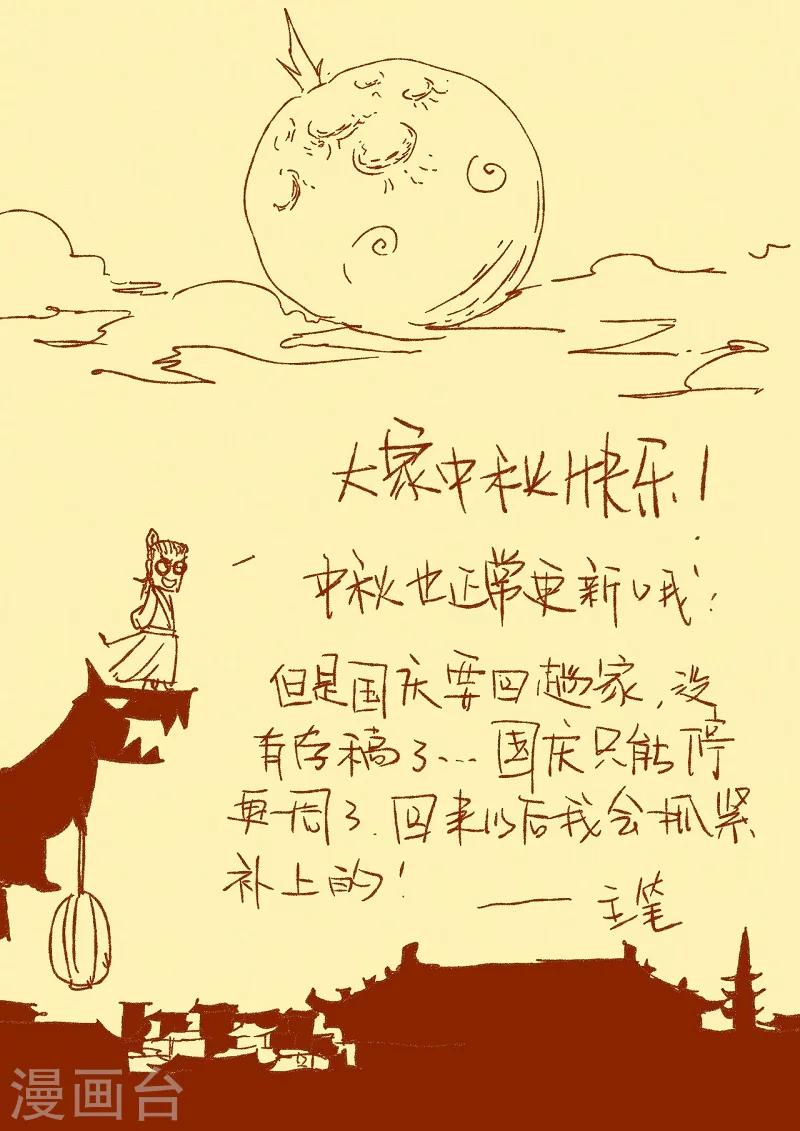 大家中秋快乐！
中秋也正常更新哦！
但是国庆要回趟家，没
有存稿了...国庆只能停
更一周了.回来以后我会抓紧
补上的！
——主笔
漫画台